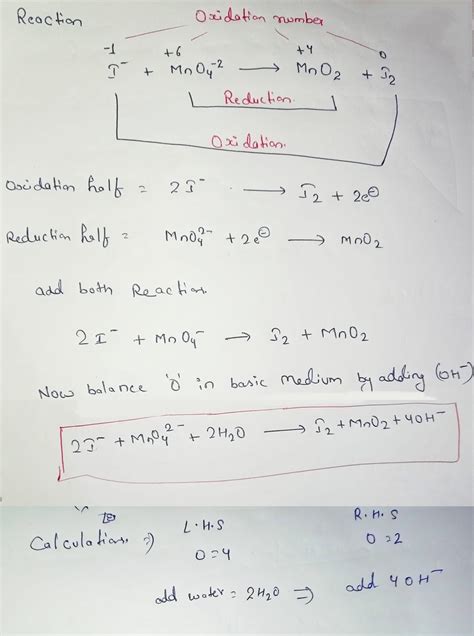 Reaction
Oxidation number
-1 +6 +4 0
I⁻ + MnO₄⁻² ⟶ MnO₂ + I₂
Reduction
Oxidation
Oxidation half = 2I⁻ ⟶ I₂ + 2e⊖
Reduction half = MnO₄²⁻ + 2e⊖ ⟶ MnO₂
add both Reaction
2I⁻ + MnO₄⁻ ⟶ I₂ + MnO₂
Now balance 'O' in basic medium by adding (OH⁻)
2I⁻ + MnO₄²⁻ + 2H₂O ⟶ I₂ + MnO₂ + 4OH⁻
Calculation ⇒ L.H.S R.H.S
O=4 O=2
add water = 2H₂O ⇒ add 4OH⁻